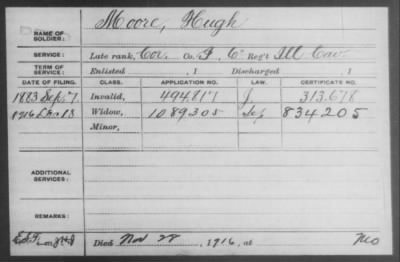 Moore, Hugh
NAME OF SOLDIER:
SERVICE: Late rank, Cor. Co. F, 6" Reg't Ill Cav
TERM OF SERVICE: Enlisted , 1 Discharged , 1
DATE OF FILING. CLASS. APPLICATION NO. LAW. CERTIFICATE NO.
1883 Sep. 7. Invalid, 494.817 J. 313.678
1916 Dec 13 Widow, 1089305 834205
Minor,
ADDITIONAL SERVICES:
REMARKS:
Died Nov 28, 1916, at Mo